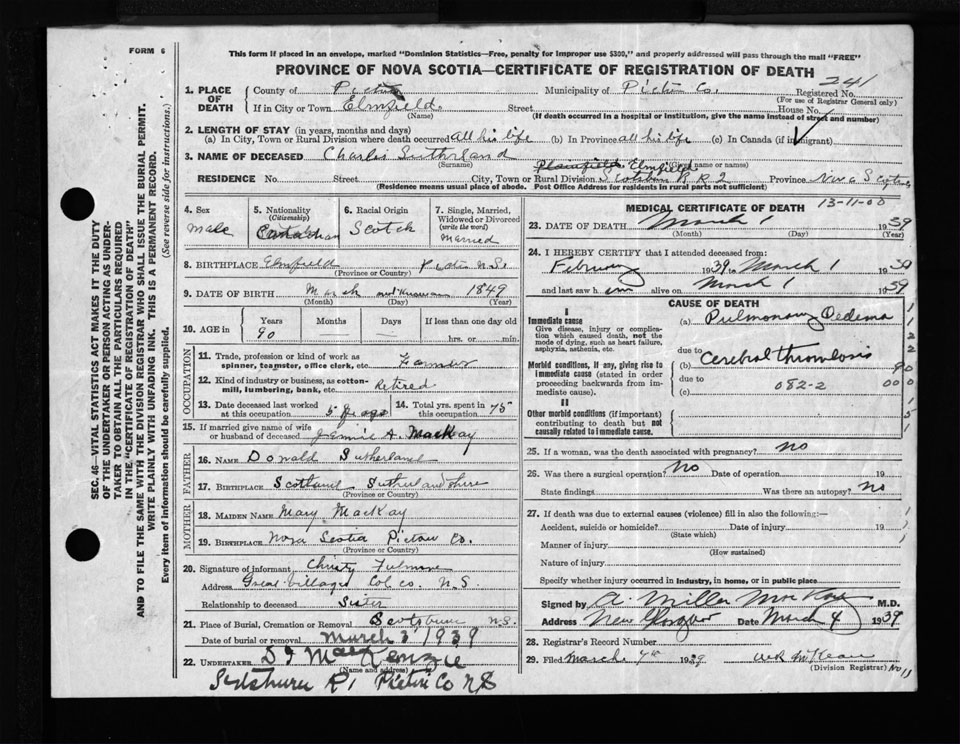 FORM 6
This form if placed in an envelope, marked "Dominion Statistics—Free, penalty for improper use $300," and properly addressed will pass through the mail "FREE"
PROVINCE OF NOVA SCOTIA—CERTIFICATE OF REGISTRATION OF DEATH
241
1. PLACE OF DEATH
County of Pictou Municipality of Pictou Co. Registered No.
(For use of Registrar General only)
If in City or Town Elmfield. Street House No.
(Name) (If death occurred in a hospital or institution, give the name instead of street and number)
2. LENGTH OF STAY (in years, months and days)
(a) In City, Town or Rural Division where death occurred All his life (b) In Province all his life (c) In Canada (if immigrant)
3. NAME OF DECEASED Charles Sutherland
(Surname) (Given name or names)
Plainfield Elmfield
RESIDENCE No. Street City, Town or Rural Division Scotsburn RR2 Province Nova Scotia
(Residence means usual place of abode. Post Office Address for residents in rural parts not sufficient)
4. Sex male
5. Nationality (Citizenship) Canadian
6. Racial Origin Scotch
7. Single, Married, Widowed or Divorced (write the word) Married
8. BIRTHPLACE Elmfield Pictou N.S.
(Province or Country)
9. DATE OF BIRTH March not known 1849
(Month) (Day) (Year)
10. AGE in Years Months Days If less than one day old
90 hrs. or min.
OCCUPATION
11. Trade, profession or kind of work as spinner, teamster, office clerk, etc. Farmer
12. Kind of industry or business, as cotton-mill, lumbering, bank, etc. Retired
13. Date deceased last worked at this occupation 5 yr ago
14. Total yrs. spent in this occupation 75
15. If married give name of wife or husband of deceased Jennie A. MacKay
FATHER
16. NAME Donald Sutherland
17. BIRTHPLACE Scotland Sutherlandshire
(Province or Country)
MOTHER
18. MAIDEN NAME Mary MacKay
19. BIRTHPLACE Nova Scotia Pictou Co.
(Province or Country)
20. Signature of informant Christy Fulmore
Address Great Village Col. co. N.S.
Relationship to deceased Sister
21. Place of Burial, Cremation or Removal Scotsburn N.S.
Date of burial or removal March 3 1939
22. UNDERTAKER D I MacKenzie
(Name and address)
R1 Pictou Co N.S
13-11-00
MEDICAL CERTIFICATE OF DEATH
23. DATE OF DEATH March 1 1939
(Month) (Day)
24. I HEREBY CERTIFY that I attended deceased from:
February 1939 to March 1 1939
and last saw him alive on March 1 1939
CAUSE OF DEATH
I
Immediate cause (a) Pulmonary Oedema
Give disease, injury or complication which caused death, not the mode of dying, such as heart failure, asphyxia, asthenia, etc.
due to
Morbid conditions, if any, giving rise to immediate cause (stated in order proceeding backwards from immediate cause).
(b) Cerebral thrombosis
due to
(c) 082-2
II
Other morbid conditions (if important) contributing to death but not causally related to immediate cause.
25. If a woman, was the death associated with pregnancy? no
26. Was there a surgical operation? No Date of operation 19
State findings Was there an autopsy? no
27. If death was due to external causes (violence) fill in also the following:—
Accident, suicide or homicide? Date of injury 19
(State which)
Manner of injury
(How sustained)
Nature of injury
Specify whether injury occurred in industry, in home, or in public place
Signed by A. Miller MacKay M.D.
Address New Glasgow Date March 4 1939
28. Registrar's Record Number
29. Filed March 7th 1939 McKean
(Division Registrar) No 13
SEC. 46—VITAL STATISTICS ACT MAKES IT THE DUTY
OF THE UNDERTAKER OR PERSON ACTING AS UNDER-
TAKER TO OBTAIN ALL THE PARTICULARS REQUIRED
IN THE "CERTIFICATE OF REGISTRATION OF DEATH"
AND TO FILE THE SAME WITH THE DIVISION REGISTRAR WHO SHALL ISSUE THE BURIAL PERMIT.
WRITE PLAINLY WITH UNFADING INK. THIS IS A PERMANENT RECORD.
Every item of Information should be carefully supplied. (See reverse side for instructions.)